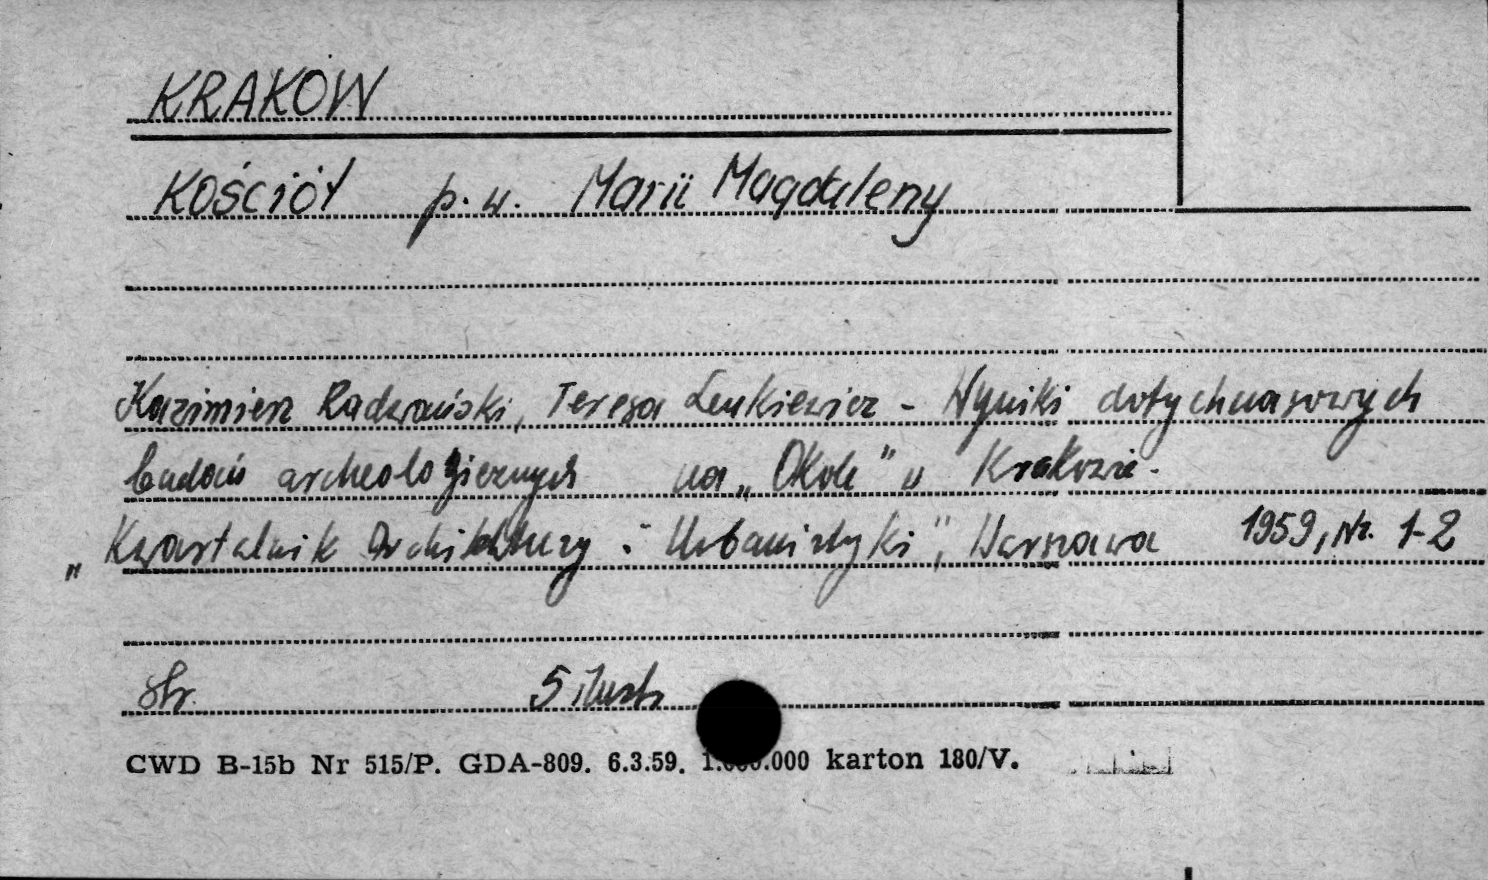 KRAKÓW
KOŚCIÓŁ p.w. Marii Magdaleny
Kazimierz Radwański, Teresa Lenkiewicz - Wyniki dotychczasowych
badań archeologicznych na „Okole" w Krakowie.
„Kwartalnik Architektury i Urbanistyki", Warszawa 1959, Nr. 1-2
str. 5 ilustr.
CWD B-15b Nr 515/P. GDA-809. 6.3.59. 1.000.000 karton 180/V.